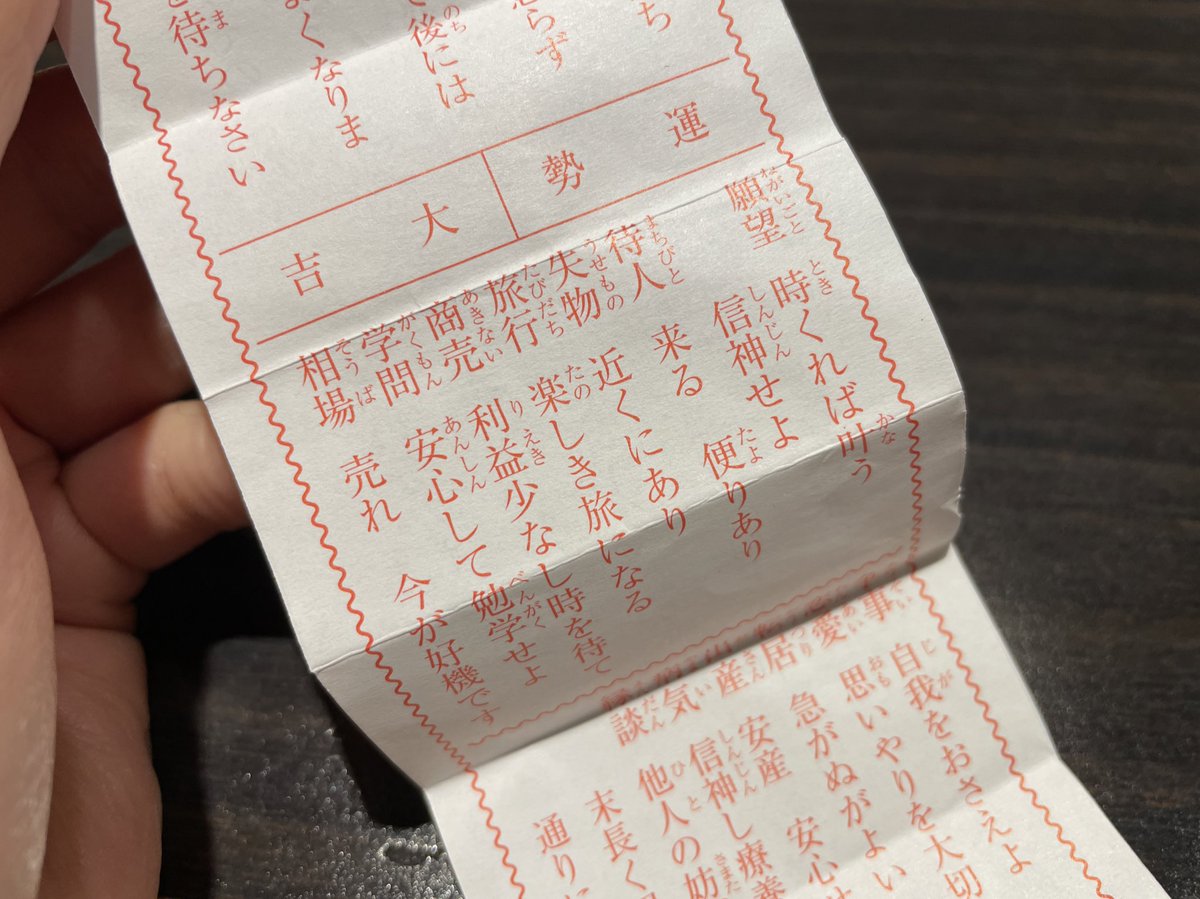 ち
らず
後には
よくなりま
待ちなさい
運勢
大吉
願望 時くれば叶う
信神せよ
待人 来る 便りあり
失物 近くにあり
旅行 楽しき旅になる
商売 利益少なし時を待て
学問 安心して勉学せよ
相場 売れ 今が好機です
事 自我をおさえよ
愛 思いやりを大切
居 急がぬがよい 安心せ
産 安産
気 信神し療養
談 他人の妨
末長く
通りに